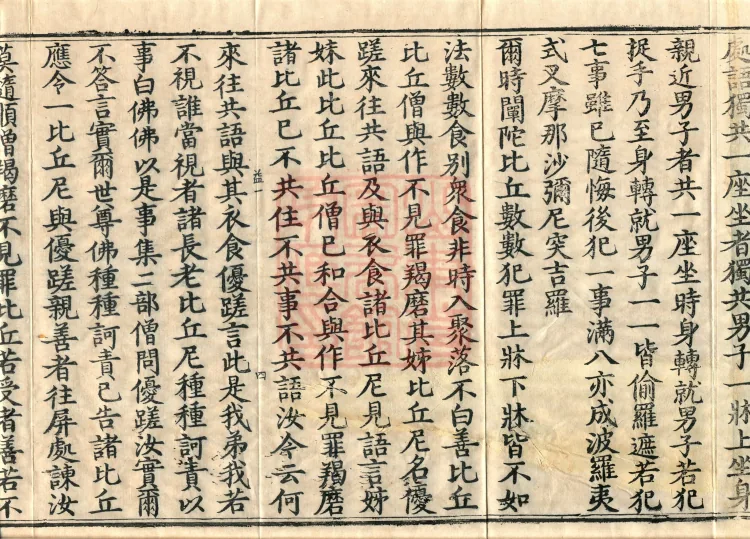 處語獨共一座坐者獨共男子一牀上坐身
親近男子者共一座坐時身轉就男子若犯
捉手乃至身轉就男子一一皆偷羅遮若犯
七事雖已隨悔後犯一事滿八亦成波羅夷
式叉摩那沙彌尼突吉羅
爾時闡陀比丘數數犯罪上牀下牀皆不如
法數數食别衆食非時入聚落不白善比丘
比丘僧與作不見罪羯磨其姊比丘尼名優
蹉來往共語及與衣食諸比丘尼見語言姊
妹此比丘比丘僧已和合與作不見罪羯磨
諸比丘已不共住不共事不共語汝今云何
益一
四
來往共語與其衣食優蹉言此是我弟我若
不視誰當視者諸長老比丘尼種種訶責以
事白佛佛以是事集二部僧問優蹉汝實爾
不答言實爾世尊佛種種訶責已告諸比丘
應令一比丘尼與優蹉親善者往屏處諫汝
莫隨順僧羯磨不見罪比丘若受者善若不